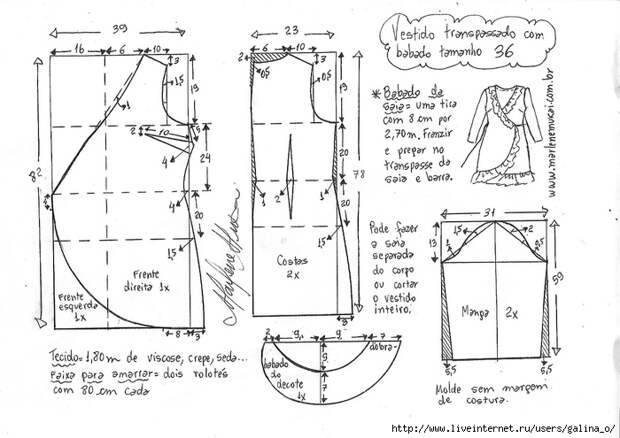 Vestido transpassado com
babado tamanho 36
* Babado da
saia = uma tira
com 8 cm por
2,70m. Franzir
e pregar no
transpasse da
saia e barra.
www.marlenemukai.com.br
39
16 6 10
3
2
15
19
1
82
2
10
1,5
4
24
4
20
15
Frente
esquerda
1x
Frente
direita 1x
8 3
23
2 6 10
3
0,5
0,5
19
20
78
1
2
1
20
1,5
Costas
2x
3
Marlene Mukai
Pode fazer
a saia
separada
do corpo
ou cortar
o vestido
inteiro.
31
13
1
1,5
2
0,5
59
Manga 2x
5,5 5,5
Molde sem margem
de costura.
2 9 9 7
dobra
9
7
babado
do
decote
1x
Tecido = 1,80m de viscose, crepe, seda...
Faixa para amarrar = dois rolotês
com 80 cm cada
http://www.liveinternet.ru/users/galina_o/